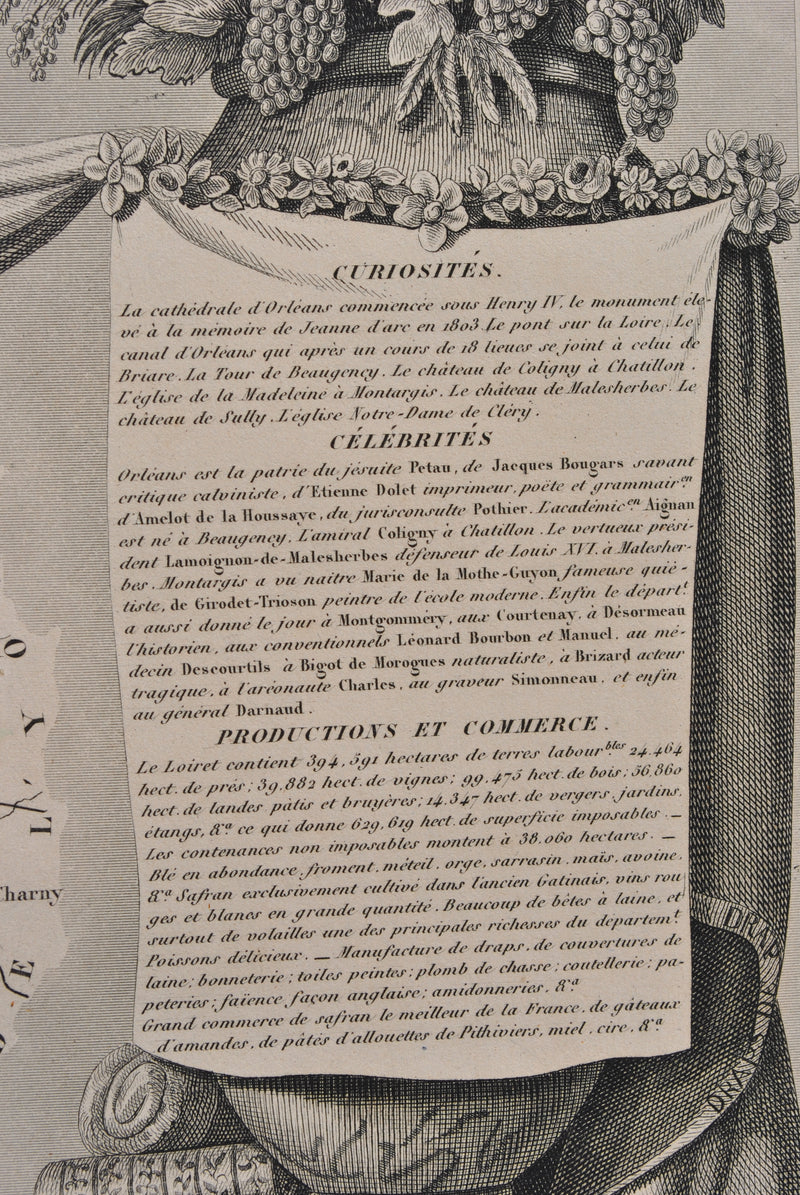 CURIOSITÉS.
La cathédrale d'Orléans commencée sous Henry IV, le monument éle-
vé à la mémoire de Jeanne d'arc en 1803. Le pont sur la Loire. Le
canal d'Orléans qui après un cours de 18 lieues se joint à celui de
Briare. La Tour de Beaugency. Le château de Coligny à Chatillon.
L'église de la Madeleine à Montargis. Le château de Malesherbes. Le
château de Sully. L'église Notre-Dame de Cléry.
CÉLÉBRITÉS
Orléans est la patrie du jésuite Petau, de Jacques Bougars savant
critique calviniste, d'Etienne Dolet imprimeur, poète et grammair.en
d'Amelot de la Houssaye, du jurisconsulte Pothier. L'académic.en Aignan
est né à Beaugency. L'amiral Coligny à Chatillon. Le vertueux prési-
dent Lamoignon-de-Malesherbes défenseur de Louis XVI. à Malesher-
bes. Montargis a vu naitre Marie de la Mothe-Guyon fameuse quié-
tiste, de Girodet-Trioson peintre de l'école moderne. Enfin le départ.t
a aussi donné le jour à Montgomméry, aux Courtenay, à Désormeau
l'historien, aux conventionnels Léonard Bourbon et Manuel, au mé-
decin Descourtils à Bigot de Morogues naturaliste, à Brizard acteur
tragique, à l'aréonaute Charles, au graveur Simonneau, et enfin
au général Darnaud.
PRODUCTIONS ET COMMERCE.
Le Loiret contient 394,591 hectares de terres labour.bles 24.464
hect. de prés; 39,882 hect. de vignes; 99,475 hect. de bois; 56,860
hect. de landes pâtis et bruyères; 14.347 hect. de vergers jardins,
étangs, &.a ce qui donne 629,619 hect. de superficie imposables. —
Les contenances non imposables montent à 38.060 hectares. —
Blé en abondance, froment, méteil, orge, sarrasin, maïs, avoine,
&.a Safran exclusivement cultivé dans l'ancien Gatinais, vins rou
ges et blancs en grande quantité. Beaucoup de bêtes à laine, et
surtout de volailles une des principales richesses du départem.t
Poissons délicieux. — Manufacture de draps, de couvertures de
laine; bonneterie; toiles peintes; plomb de chasse; coutellerie; pa-
peteries; faïence façon anglaise; amidonneries, &.a
Grand commerce de safran le meilleur de la France, de gâteaux
d'amandes, de pâtés d'allouettes de Pithiviers, miel, cire, &.a
L' Y O
Charny
E